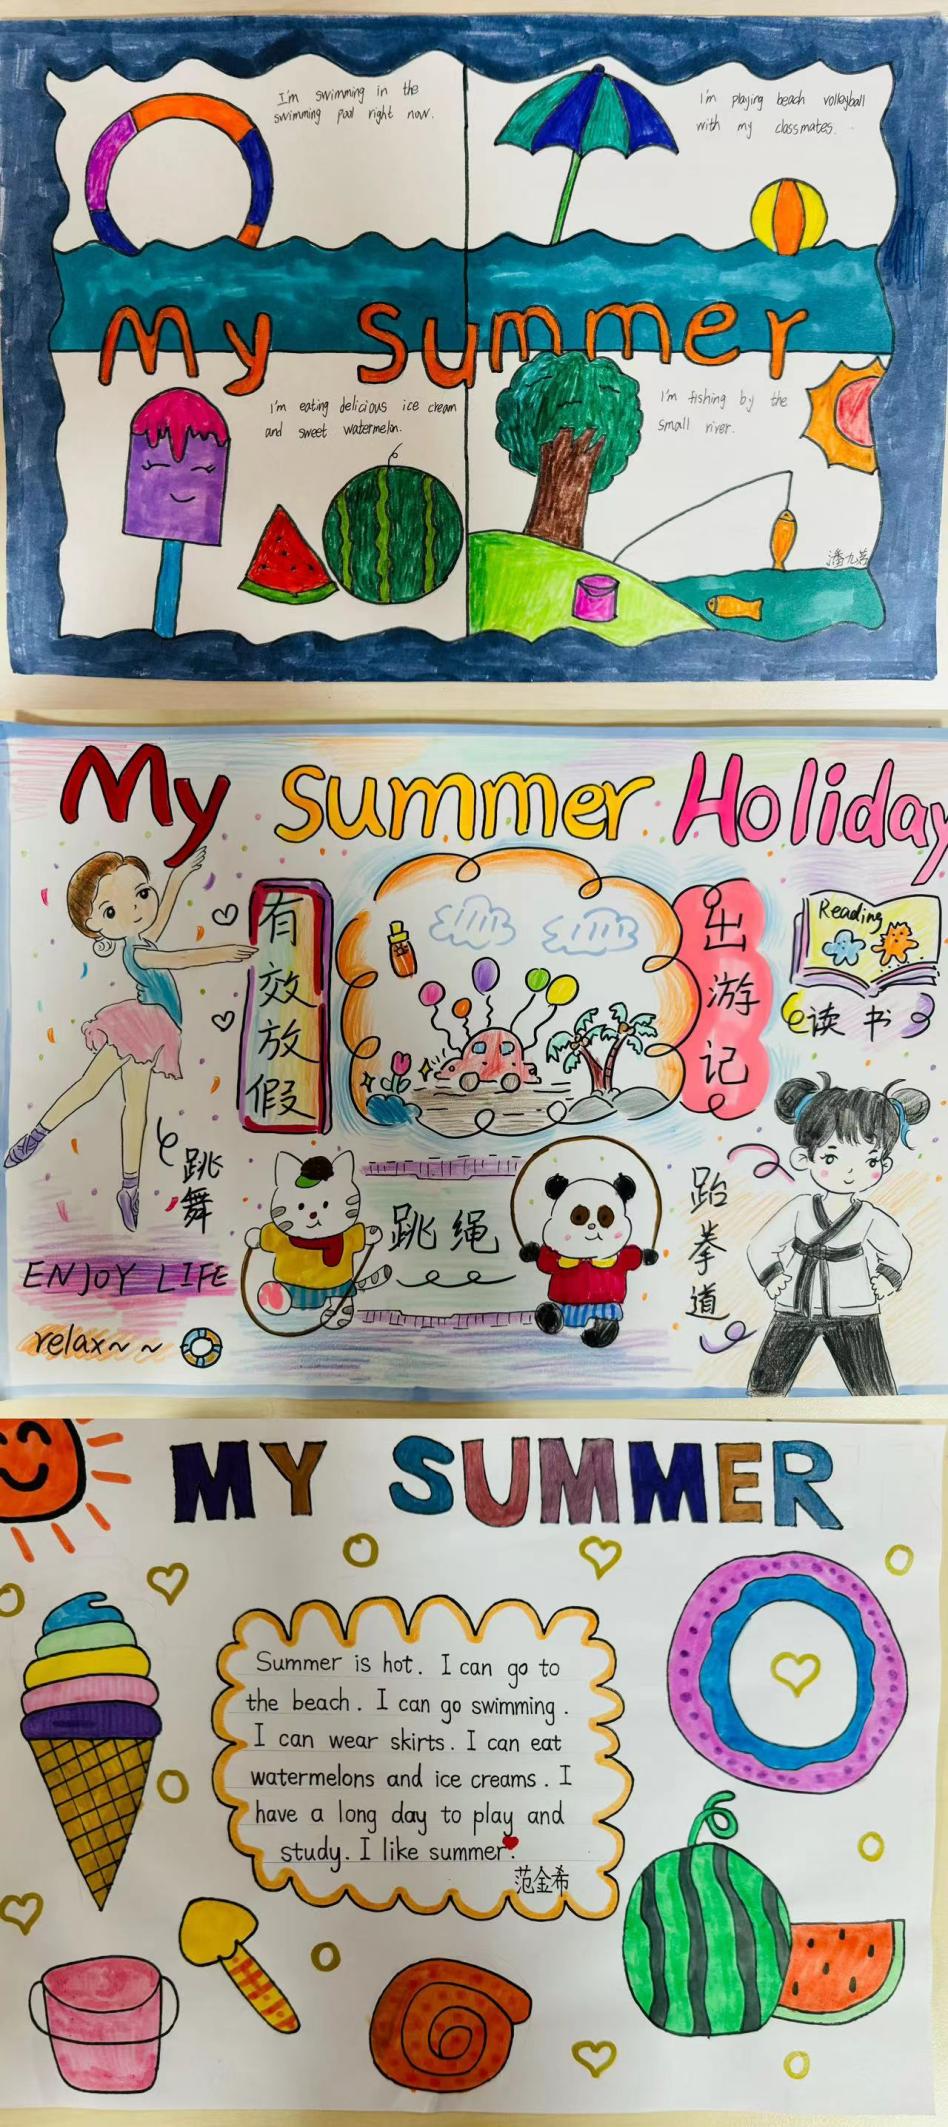 I'm swimming in the
swimming pool right now.
I'm playing beach volleyball
with my classmates.
My Summer
I'm eating delicious ice cream
and sweet watermelon.
I'm fishing by the
small river.
My Summer Holiday
有效放假
出游记
Reading
读书
跳舞
跳绳
跆拳道
ENJOY LIFE
relax~ ~
MY SUMMER
Summer is hot. I can go to
the beach. I can go swimming.
I can wear skirts. I can eat
watermelons and ice creams. I
have a long day to play and
study. I like summer.
范金希